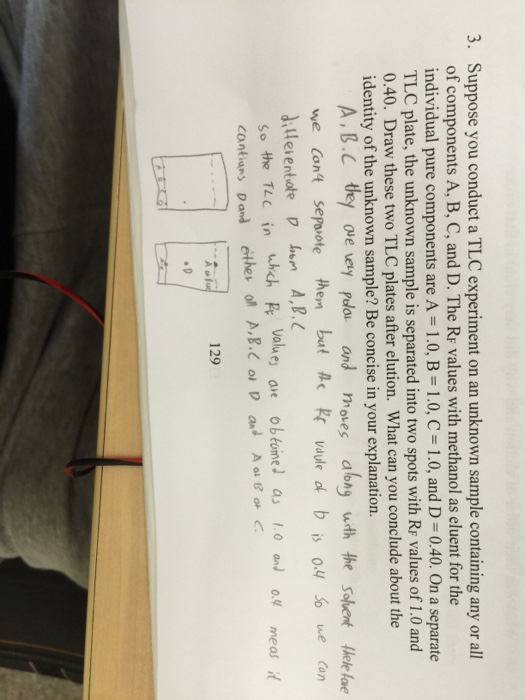 3. Suppose you conduct a TLC experiment on an unknown sample containing any or all
of components A, B, C, and D. The RF values with methanol as eluent for the
individual pure components are A = 1.0, B = 1.0, C = 1.0, and D = 0.40. On a separate
TLC plate, the unknown sample is separated into two spots with RF values of 1.0 and
0.40. Draw these two TLC plates after elution. What can you conclude about the
identity of the unknown sample? Be concise in your explanation.
A, B.C they are very polar and moves along with the solvent therefore
we can't separate them but the Rf vaule of b is 0.4 so we can
differentiate D from A,B.C
so the TLC in which Rf values are obtained as 1.0 and 0.4 meas it
contians D and either all A,B.C or D and A or B or C.
A B C D
D
129